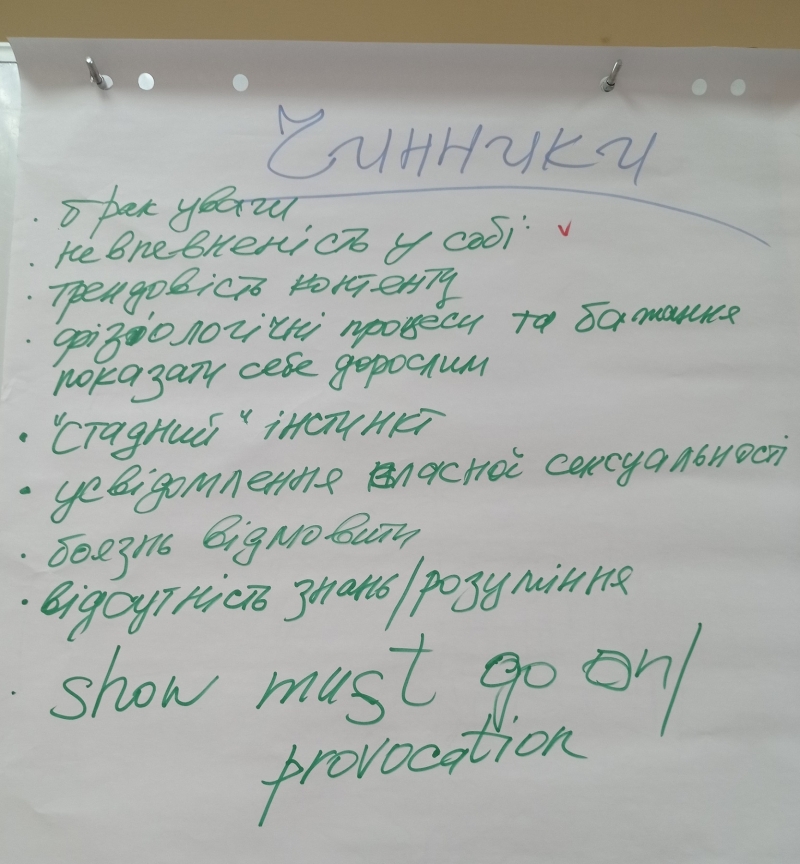 Чинники
· брак уваги
· невпевненість у собі: v
· трендовість контенту
· фізіологічні процеси та бажання
показати себе дорослим
· "стадний" інстинкт
· усвідомлення власної сексуальності
· боязнь відмовити
· відсутність знань/розуміння
· show must go on/
provocation